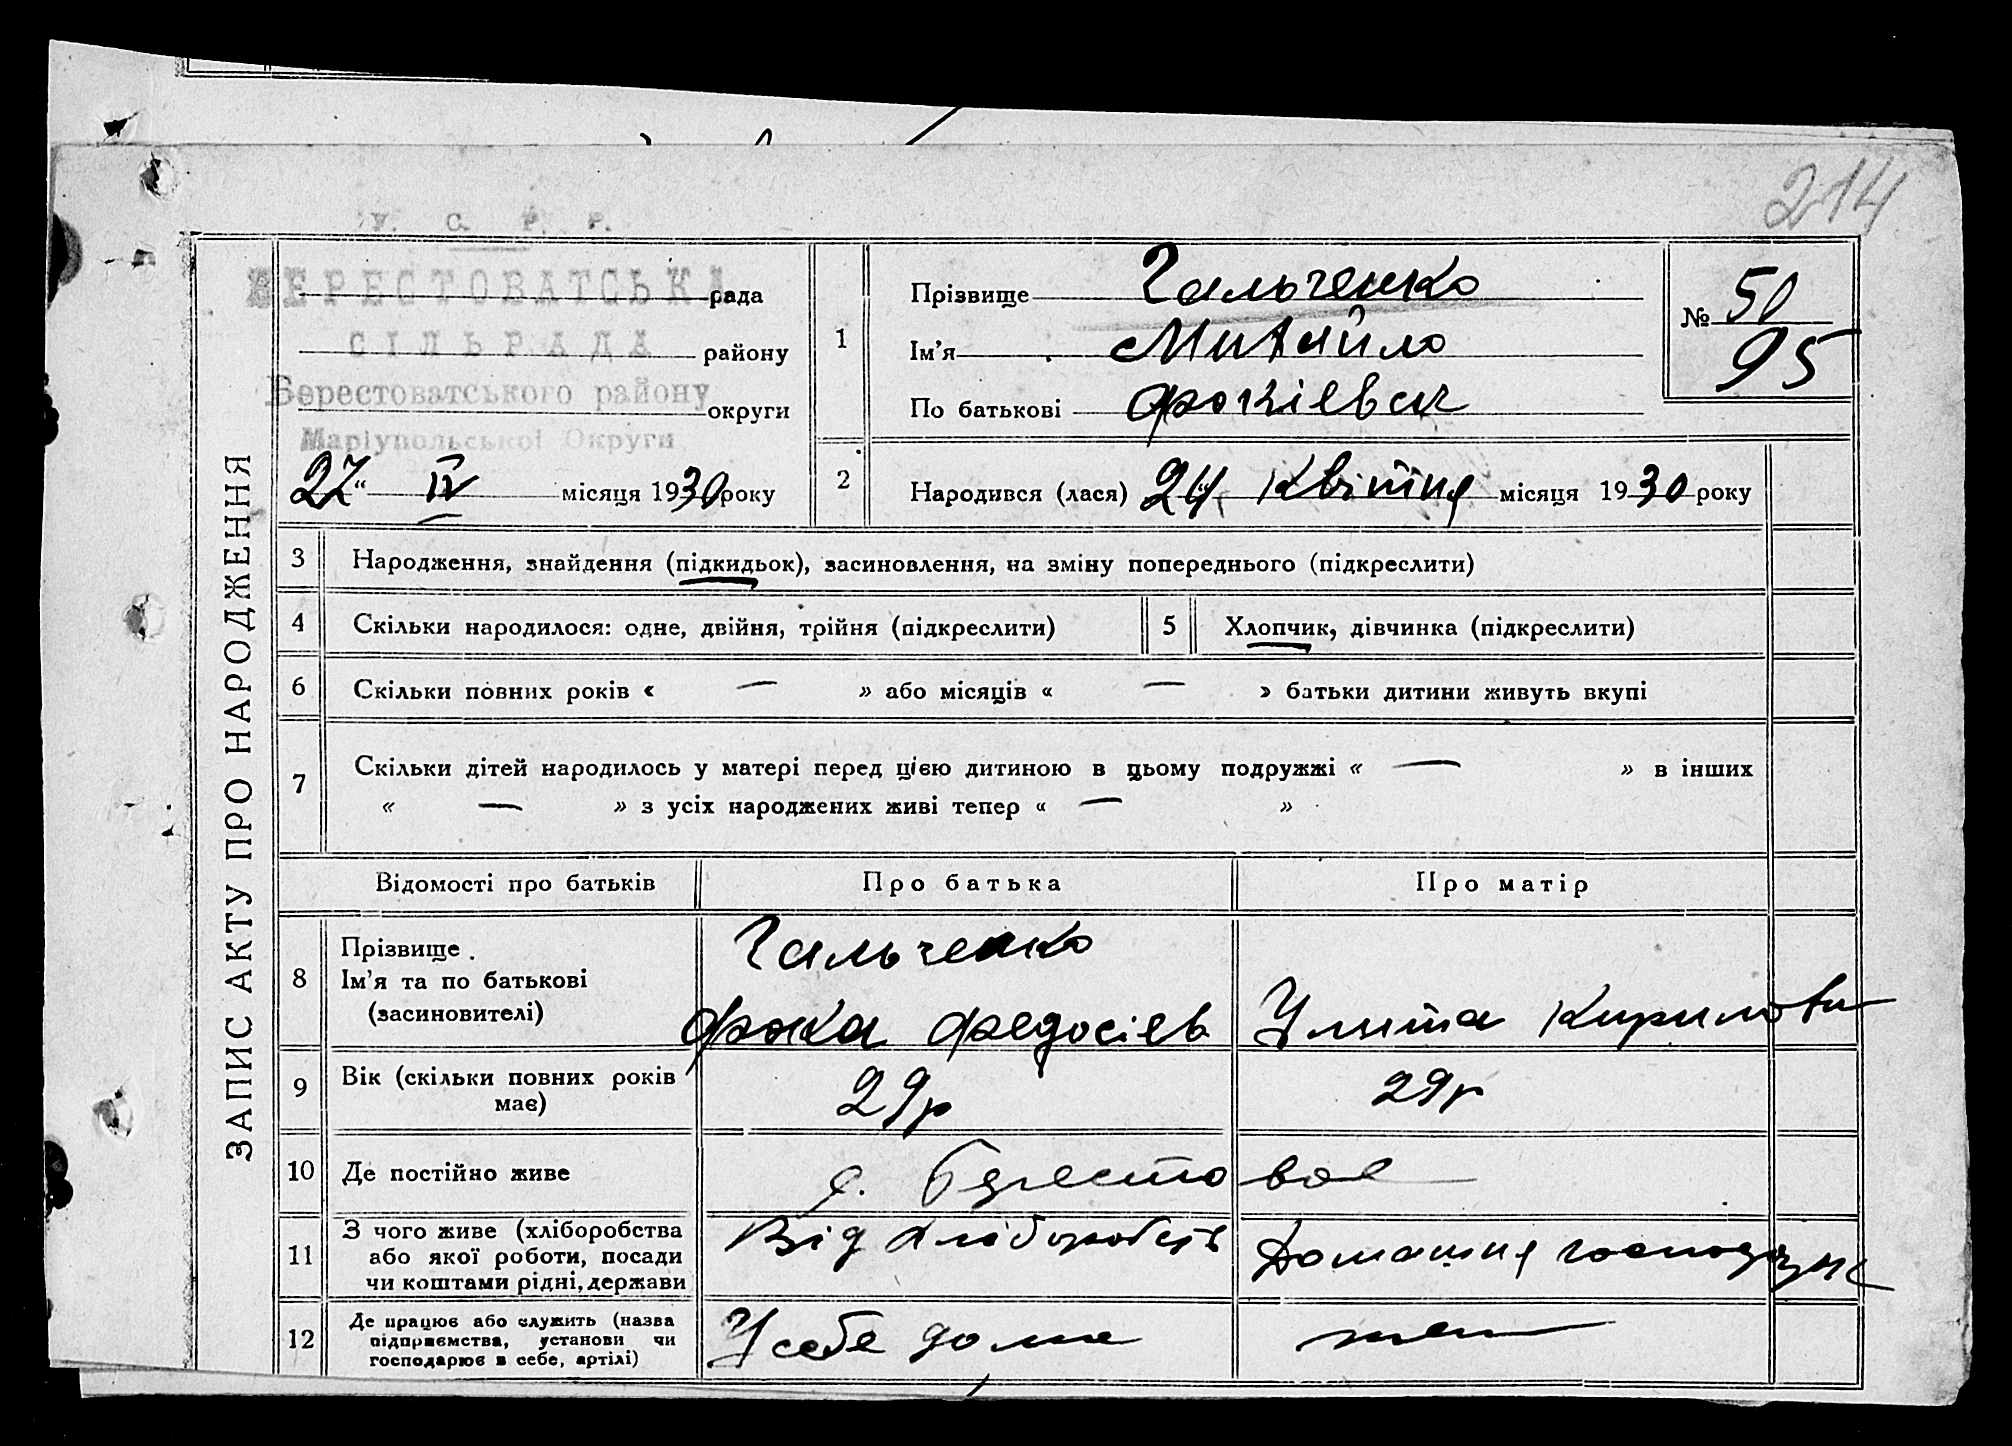 214
У. С. Р. Р.
БЕРЕСТОВАТСЬКА рада
СІЛЬРАДА району
Берестоватського району округи
Маріупольської Округи
27 " IV місяця 1930 року
ЗАПИС АКТУ ПРО НАРОДЖЕННЯ
1 Прізвище Гальченко
Ім'я Михайло
По батькові Фокієвич
№ 50
95
2 Народився (лася) 24 Квітня місяця 1930 року
3 Народження, знайдення (підкидьок), засиновлення, на зміну попереднього (підкреслити)
4 Скільки народилося: одне, двійня, трійня (підкреслити)
5 Хлопчик, дівчинка (підкреслити)
6 Скільки повних років « — » або місяців « — » батьки дитини живуть вкупі
7 Скільки дітей народилось у матері перед цією дитиною в цьому подружжі « — » в інших
« — » з усіх народжених живі тепер « — »
Відомості про батьків Про батька Про матір
8 Прізвище
Ім'я та по батькові
(засиновителі)
Гальченко
Фока Федосієв
Улита Кирилова
9 Вік (скільки повних років
має)
29р
29р
10 Де постійно живе с. Берестовое
11 З чого живе (хліборобства
або якої роботи, посади
чи коштами рідні, держави
Від хліборобств
Домашня
12 Де працює або служить (назва
підприємства, установи чи
господарює в себе, артілі)
У себе дома